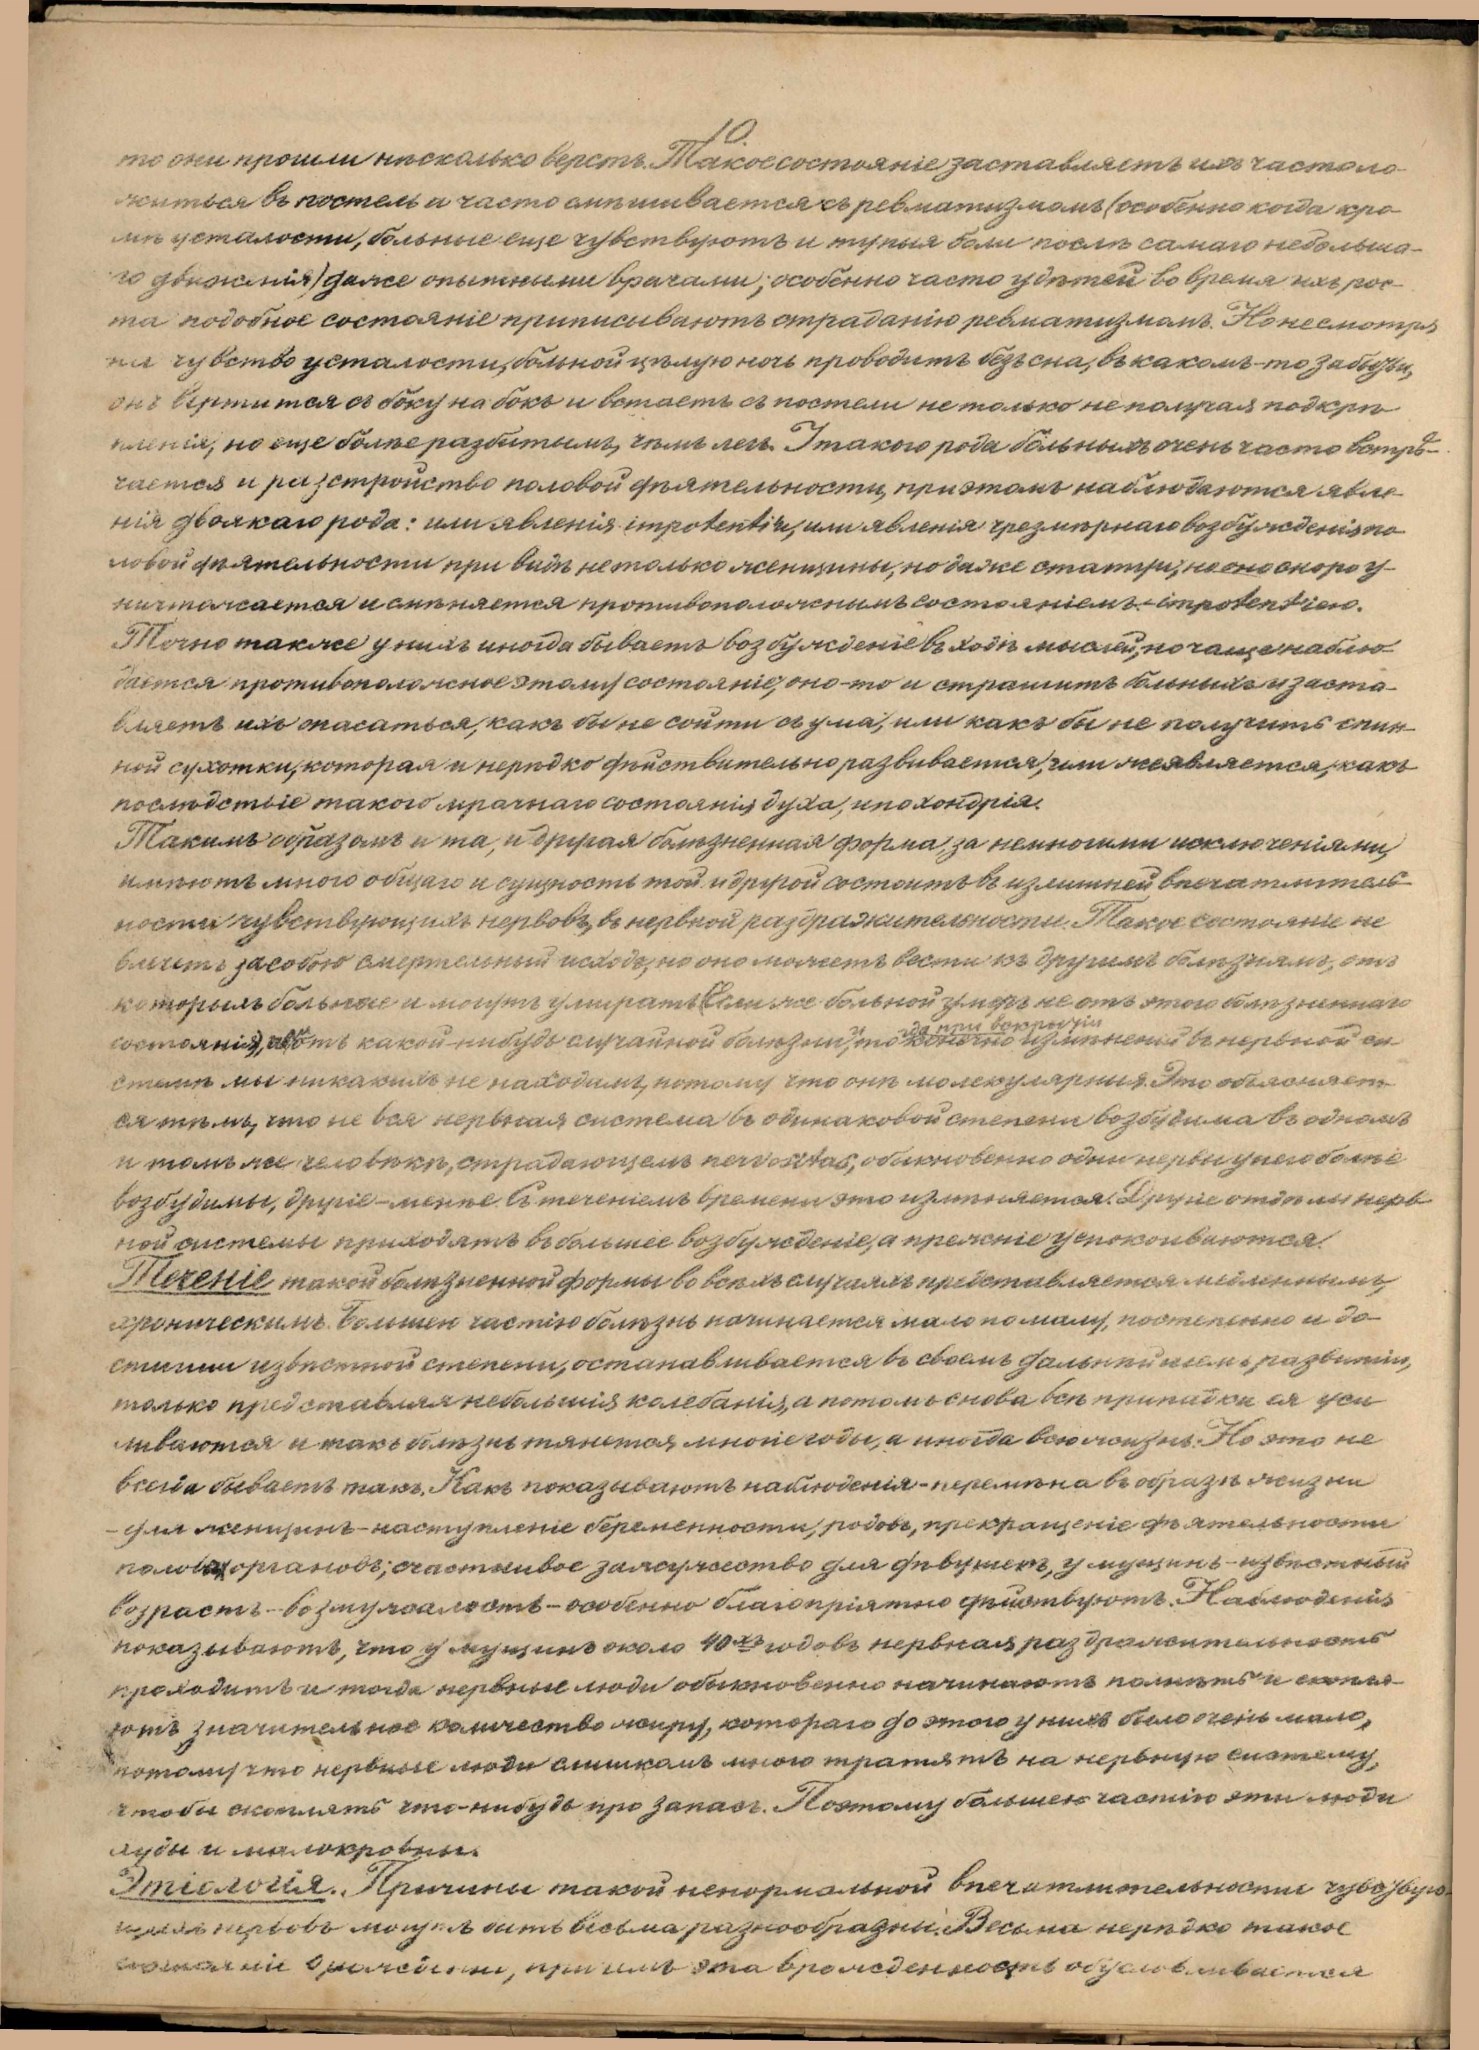 10.
то они прошли нѣсколько верстъ. Такое состояніе заставляетъ ихъ часто ло-
житься въ постель и часто смѣшивается съ ревматизмомъ (особенно когда кро-
мѣ усталости, больные еще чувствуютъ и тупыя боли послѣ самаго небольша-
го движенія) даже опытными врачами; особенно часто у дѣтей во время ихъ рос-
та подобное состояніе приписываютъ страданію ревматизмомъ. Но несмотря
на чувство усталости, больной цѣлую ночь проводитъ безъ сна, въ какомъ-то забытьи,
онъ вертится съ боку на бокъ и встаетъ съ постели не только не получая подкрѣ-
пленія, но еще болѣе разбитымъ, чѣмъ легъ. У такого рода больныхъ очень часто встрѣ-
чается и разстройство половой дѣятельности, при этомъ наблюдаются явле-
нія двоякаго рода: или явленія impotentiæ, или явленія чрезмѣрнаго возбужденія по-
ловой дѣятельности при видѣ не только женщины, но даже статуи, но оно скоро у-
ничтожается и смѣняется противоположнымъ состояніемъ - impotentiею.
Точно также у нихъ иногда бываетъ возбужденіе въ ходѣ мыслей, но чаще наблю-
дается противоположное этому состояніе, оно-то и страшитъ больныхъ и заста-
вляетъ ихъ опасаться, какъ бы не сойти съ ума, или какъ бы не получить спин-
ной сухотки, которая и нерѣдко дѣйствительно развивается, или же является, какъ
послѣдствіе такого мрачнаго состоянія духа, ипохондрія.
Такимъ образомъ и та, и другая болѣзненная форма, за немногими исключеніями,
имѣютъ много общаго и сущность той и другой состоитъ въ излишней впечатлитель-
ности чувствующихъ нервовъ, въ нервной раздражительности. Такое состояніе не
влечетъ за собою смертельный исходъ, но оно можетъ вести къ другимъ болѣзнямъ, отъ
которыхъ больные и могутъ умирать. Если же больной умеръ не отъ этого болѣзненнаго
состоянія, а отъ какой-нибудь случайной болѣзни, то
да при вскрытіи
конечно измѣненій въ нервной си-
стемѣ мы никакихъ не находимъ, потому что онѣ молекулярныя. Это объясняет-
ся тѣмъ, что не вся нервная система въ одинаковой степени возбудима въ одномъ
и томъ же человѣкѣ, страдающемъ nervositas, обыкновенно одни нервы у него болѣе
возбудимы, другіе - менѣе. Съ теченіемъ времени это измѣняется. Другіе отдѣлы нерв-
ной системы приходятъ въ большее возбужденіе, а прежніе успокоиваются.
Теченіе такой болѣзненной формы во всѣхъ случаяхъ представляется медленнымъ,
хроническимъ. Большею частію болѣзнь начинается мало по малу, постепенно и до-
стигши извѣстной степени, останавливается въ своемъ дальнѣйшемъ развитіи,
только представляя небольшія колебанія, а потомъ снова всѣ припадки ея уси-
ливаются и такъ болѣзнь тянется многіе годы, а иногда всю жизнь. Но это не
всегда бываетъ такъ. Какъ показываютъ наблюденія - перемѣна въ образѣ жизни
- для женщинъ - наступленіе беременности, родовъ, прекращеніе дѣятельности
половыхъ органовъ; счастливое замужество для дѣвушекъ, у мущинъ - извѣстный
возрастъ - возмужалость - особенно благопріятно дѣйствуютъ. Наблюденія
показываютъ, что у мущинъ около 40хъ годовъ нервная раздражительность
проходитъ и тогда нервные люди обыкновенно начинаютъ полнѣть и скопля-
ютъ значительное количество жиру, котораго до этого у нихъ было очень мало,
потому что нервные люди слишкомъ много тратятъ на нервную систему,
чтобы скоплять что-нибудь про запасъ. Поэтому большею частію эти люди
худы и малокровны.
Этіологія. Причины такой ненормальной впечатлительности чувствую-
щихъ нервовъ могутъ быть весьма разнообразны. Весьма нерѣдко такое
состояніе врожденно, при чемъ эта врожденность обусловливается